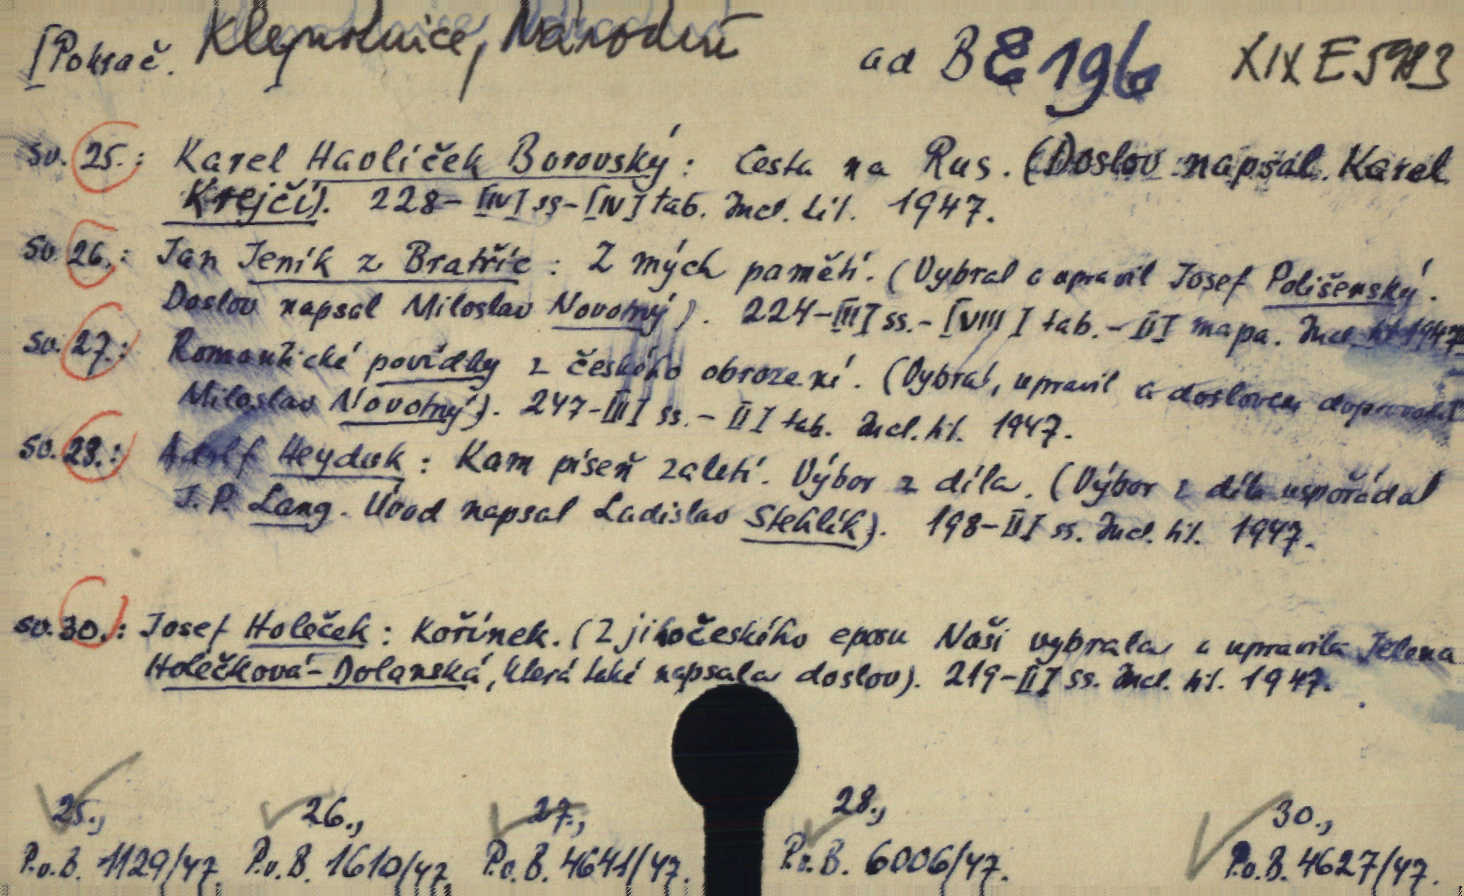 [Pokrač. Klenotnice, Národní ad B E 196 XIX E 5983
Sv. 25.: Karel Havlíček Borovský: Cesta na Rus. (Doslov napsal Karel
Krejčí). 228-[IV] ss-[IV] tab. Incl. tit. 1947.
Sv. 26.: Jan Jeník z Bratřic: Z mých pamětí. (Vybral a upravil Josef Polišenský.
Doslov napsal Miloslav Novotný). 224-[II] ss.-[VIII] tab.-[I] mapa. Incl. tit 1947
Sv. 27.: Romantické povídky z českého obrození. (Vybral, upravil a doslovem doprovodil
Miloslav Novotný). 247-[II] ss.-[I] tab. Incl. tit. 1947.
Sv. 28.: Adolf Heyduk: Kam píseň zaletí. Výbor z díla. (Výbor z díla uspořádal
J. P. Lang. Úvod napsal Ladislav Stehlík). 198-[I] ss. Incl. tit. 1947.
Sv. 30.: Josef Holeček: Kořínek. (Z jihočeského eposu Naši vybrala a upravila Jelena
Holéčková-Dolanská, která také napsala doslov). 219-[I] ss. Incl. tit. 1947.
25., 26., 27., 28., 30.,
P.v.B. 1129/47. P.v.B. 1610/47. P.v.B. 4641/47. P.v.B. 6006/47. P.v.B. 4627/47.